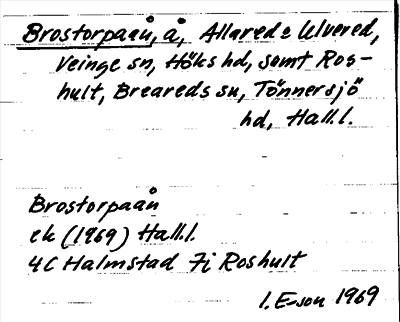 Brostorpaån, å, Allared o Ulvered,
Veinge sn, Höks hd, samt Ros-
hult, Breareds sn, Tönnersjö
hd, Hall.l.
Brostorpaån
ek (1969) Hall.l.
4C Halmstad 7i Roshult
I. E-son 1969